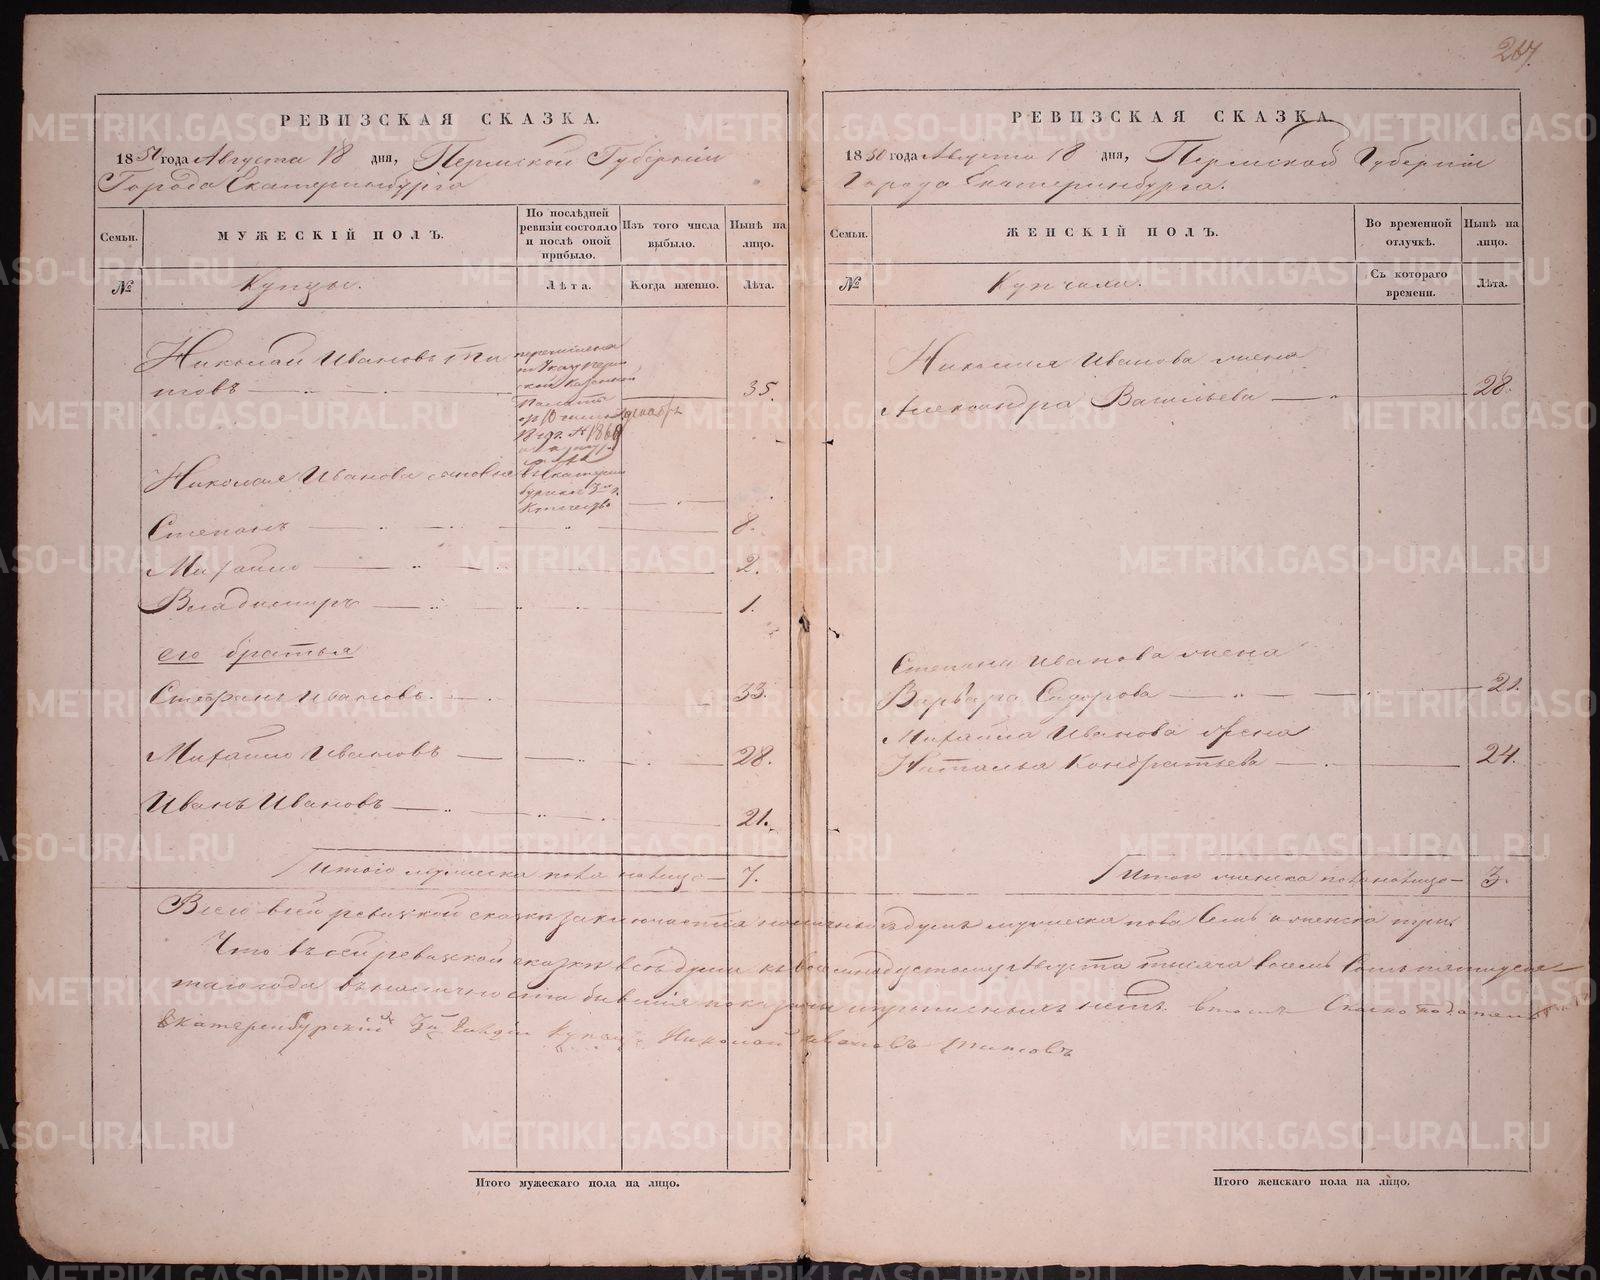 267.
РЕВИЗСКАЯ СКАЗКА.
1850 года Августа 18 дня, Пермской Губернии
Города Екатеринбурга
Семьи.
МУЖЕСКІЙ ПОЛЪ.
По послѣдней ревизіи состояло и послѣ оной прибыло.
Изъ того числа выбыло.
Нынѣ на лицо.
№
Купцы.
Лѣта.
Когда именно.
Лѣта.
Николай Ивановъ Ти
товъ 35.
перечислена
Указу Перм
ской Казенной
Палаты
Николая Иванова сыновья
Степанъ 8.
Михайло 2.
Владимиръ 1.
его братья
Стефанъ Ивановъ. 33.
Михайло Ивановъ 28.
Иванъ Ивановъ 21.
Итого мужеска пола налицо 7.
РЕВИЗСКАЯ СКАЗКА.
1850 года Августа 18 дня, Пермской Губерніи
Города Екатеринбурга.
Семьи.
ЖЕНСКІЙ ПОЛЪ.
Во временной отлучкѣ.
Нынѣ на лицо.
№
Съ котораго времени.
Лѣта.
Николая Иванова жена
Александра Васильева 28.
Степана Иванова жена
Варвара Сидорова 21.
Михайла Иванова жена
Наталья Кондратьева 24.
Итого женска пола налицо 3.
Всего в сей ревизкой сказке заключается наличных душъ мужеска пола Семь а женска три.
Что въ сей ревизкой сказки все души къ восемнадцатому Августа тысяча восемь сотъ пятидеся
таго года въ наличности бывшія показаны и прописныхъ нетъ. в томъ Сказкоподатель
Екатеринбурский 3й Гильдии Купецъ Николай Ивановъ Титовъ
Итого мужескаго пола на лицо.
Итого женскаго пола на лицо.
METRIKI.GASO-URAL.RU